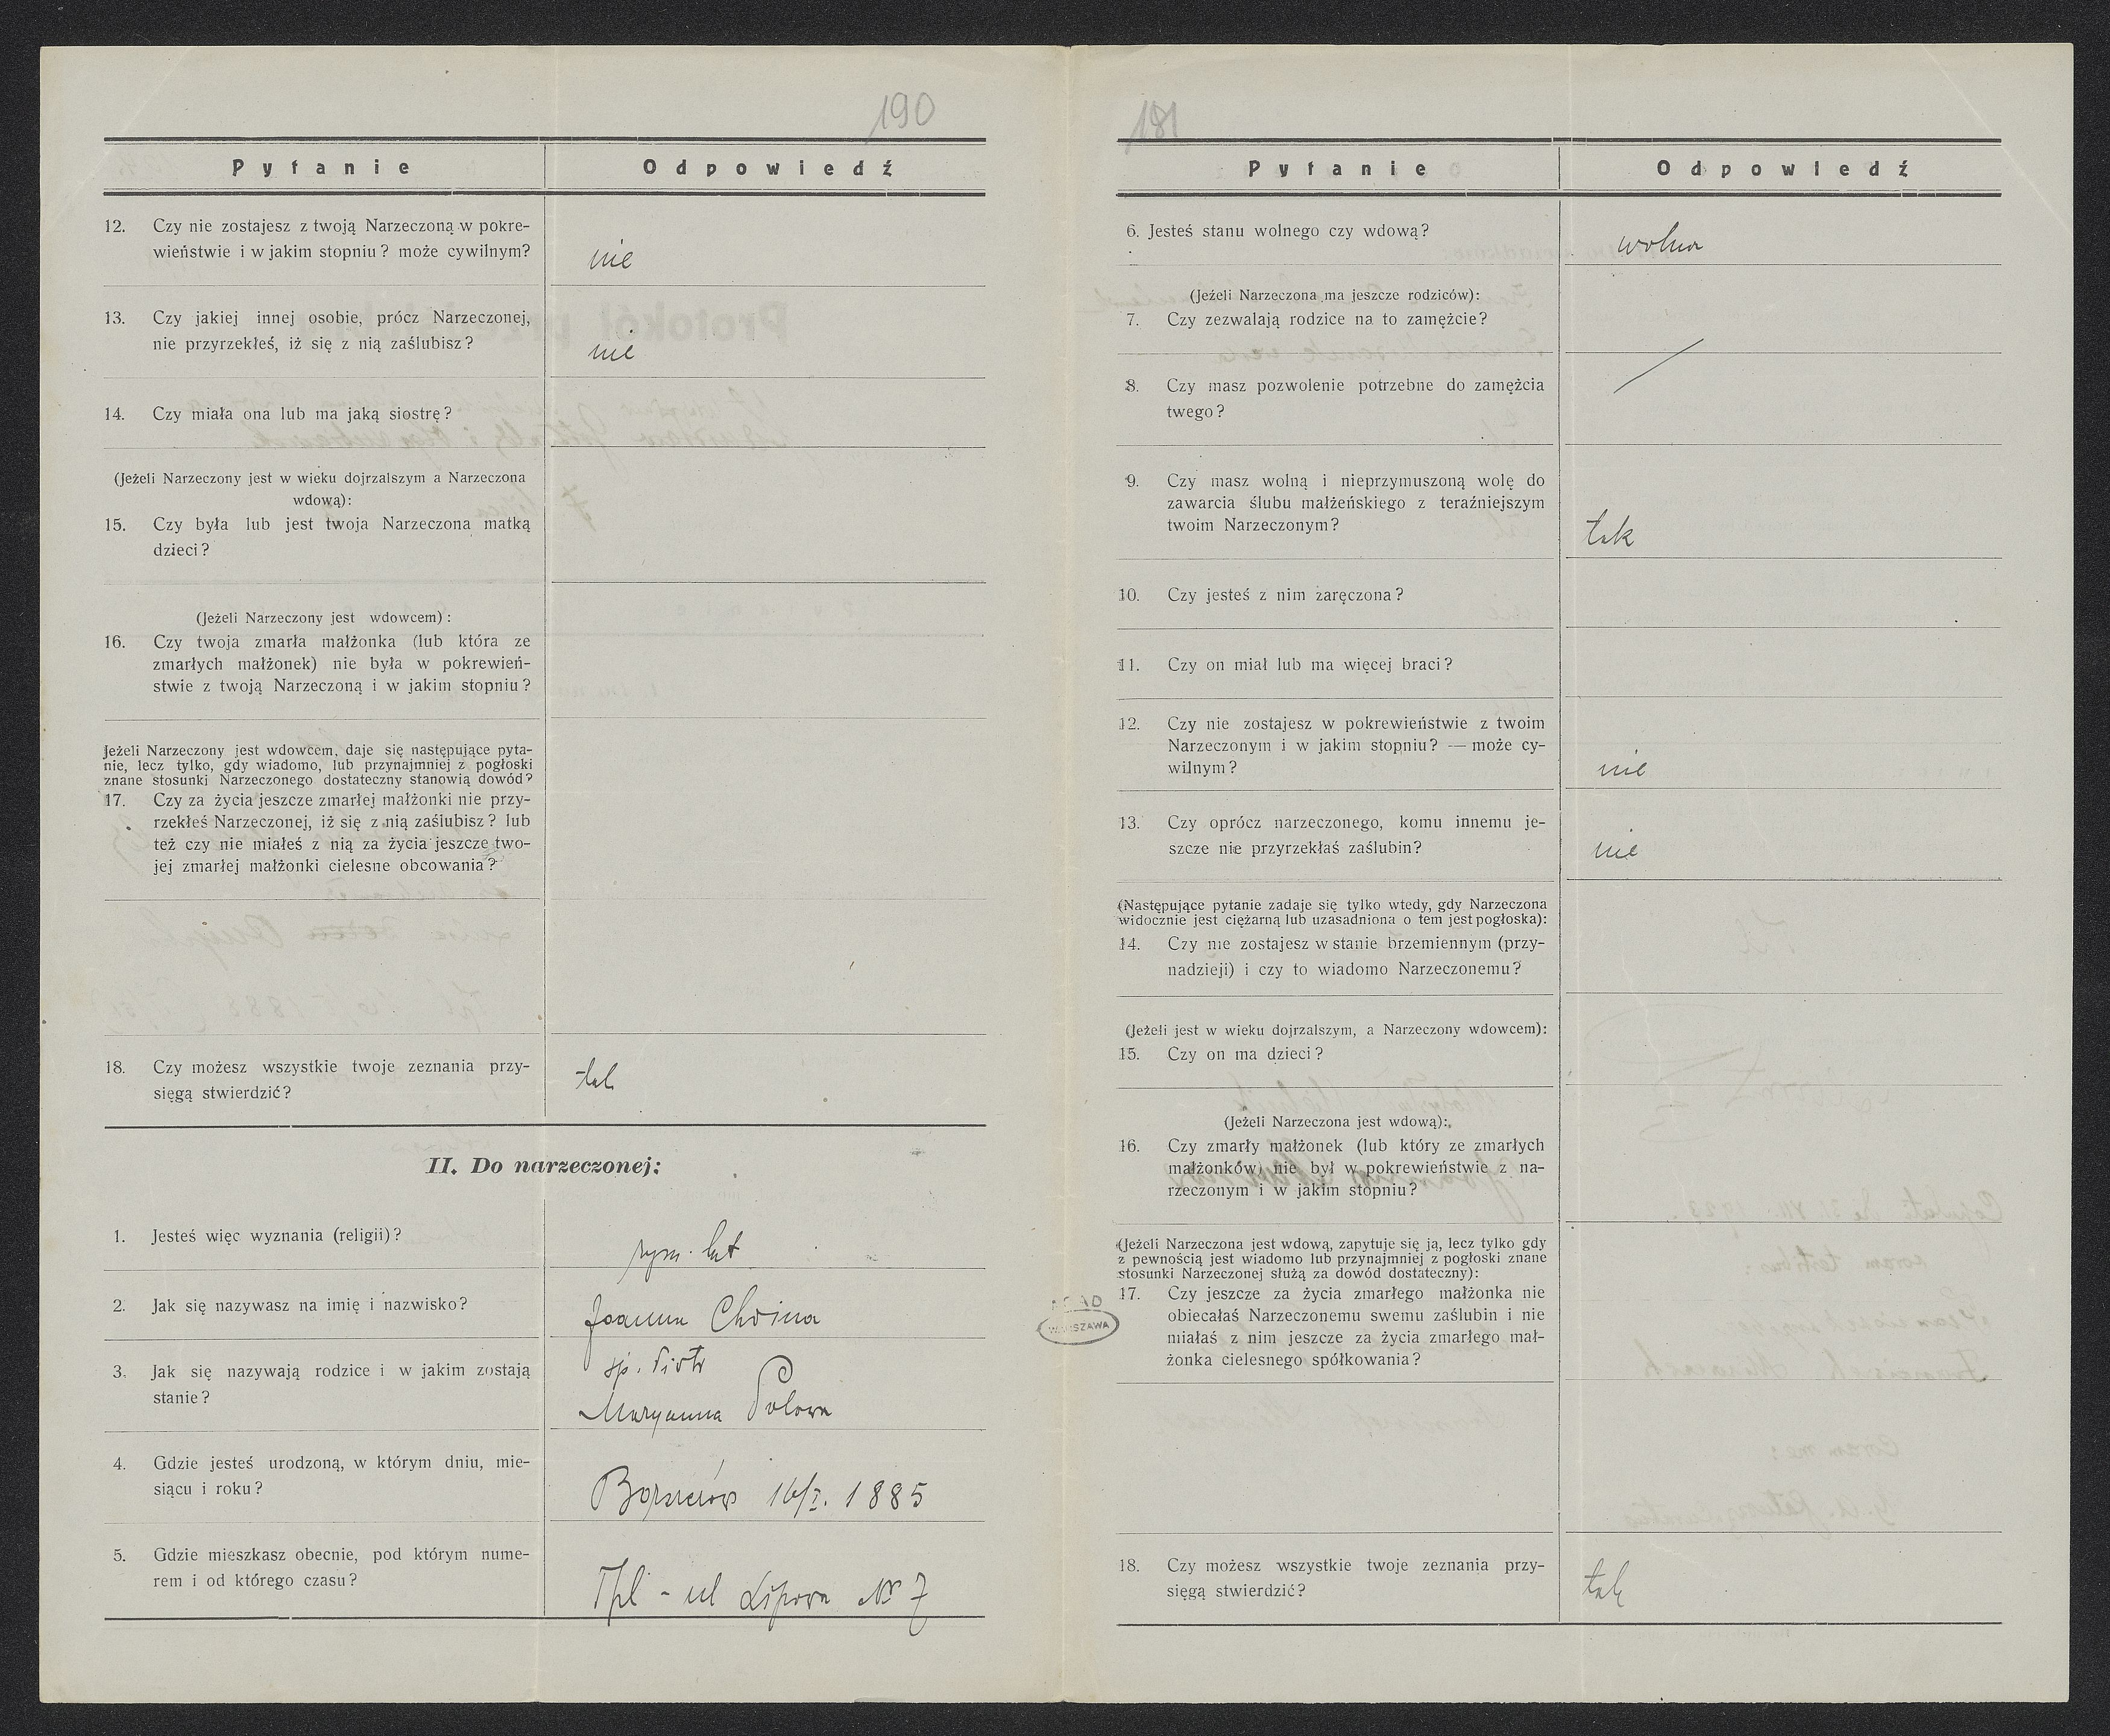 190
Pytanie Odpowiedź
12. Czy nie zostajesz z twoją Narzeczoną w pokre-
wieństwie i w jakim stopniu? może cywilnym?
nie
13. Czy jakiej innej osobie, prócz Narzeczonej,
nie przyrzekłeś, iż się z nią zaślubisz?
nie
14. Czy miała ona lub ma jaką siostrę?
(Jeżeli Narzeczony jest w wieku dojrzalszym a Narzeczona
wdową):
15. Czy była lub jest twoja Narzeczona matką
dzieci?
(Jeżeli Narzeczony jest wdowcem):
16. Czy twoja zmarła małżonka (lub która ze
zmarłych małżonek) nie była w pokrewień-
stwie z twoją Narzeczoną i w jakim stopniu?
Jeżeli Narzeczony jest wdowcem, daje się następujące pyta-
nie, lecz tylko, gdy wiadomo, lub przynajmniej z pogłoski
znane stosunki Narzeczonego dostateczny stanowią dowód?
17. Czy za życia jeszcze zmarłej małżonki nie przy-
rzekłeś Narzeczonej, iż się z nią zaślubisz? lub
też czy nie miałeś z nią za życia jeszcze two-
jej zmarłej małżonki cielesne obcowania?
18. Czy możesz wszystkie twoje zeznania przy-
sięgą stwierdzić?
tak
II. Do narzeczonej:
1. Jesteś więc wyznania (religii)?
rzym. kat
2. Jak się nazywasz na imię i nazwisko?
Joanna Choina
3. Jak się nazywają rodzice i w jakim zostają
stanie?
śp. Piotr
Maryanna Polowa
4. Gdzie jesteś urodzoną, w którym dniu, mie-
siącu i roku?
16/I. 1885
5. Gdzie mieszkasz obecnie, pod którym nume-
rem i od którego czasu?
Tpl - ul Lipowa Nr 7
181
Pytanie Odpowiedź
6. Jesteś stanu wolnego czy wdową?
wolna
(Jeżeli Narzeczona ma jeszcze rodziców):
7. Czy zezwalają rodzice na to zamężcie?
8. Czy masz pozwolenie potrzebne do zamężcia
twego?
9. Czy masz wolną i nieprzymuszoną wolę do
zawarcia ślubu małżeńskiego z teraźniejszym
twoim Narzeczonym?
tak
10. Czy jesteś z nim zaręczona?
11. Czy on miał lub ma więcej braci?
12. Czy nie zostajesz w pokrewieństwie z twoim
Narzeczonym i w jakim stopniu? — może cy-
wilnym?
nie
13. Czy oprócz narzeczonego, komu innemu je-
szcze nie przyrzekłaś zaślubin?
nie
(Następujące pytanie zadaje się tylko wtedy, gdy Narzeczona
widocznie jest ciężarną lub uzasadniona o tem jest pogłoska):
14. Czy nie zostajesz w stanie brzemiennym (przy-
nadzieji) i czy to wiadomo Narzeczonemu?
(Jeżeli jest w wieku dojrzalszym, a Narzeczony wdowcem):
15. Czy on ma dzieci?
(Jeżeli Narzeczona jest wdową):
16. Czy zmarły małżonek (lub który ze zmarłych
małżonków) nie był w pokrewieństwie z na-
rzeczonym i w jakim stopniu?
(Jeżeli Narzeczona jest wdową, zapytuje się ją, lecz tylko gdy
z pewnością jest wiadomo lub przynajmniej z pogłoski znane
stosunki Narzeczonej służą za dowód dostateczny):
AGAD
WARSZAWA
17. Czy jeszcze za życia zmarłego małżonka nie
obiecałaś Narzeczonemu swemu zaślubin i nie
miałaś z nim jeszcze za życia zmarłego mał-
żonka cielesnego spółkowania?
18. Czy możesz wszystkie twoje zeznania przy-
sięgą stwierdzić?
tak